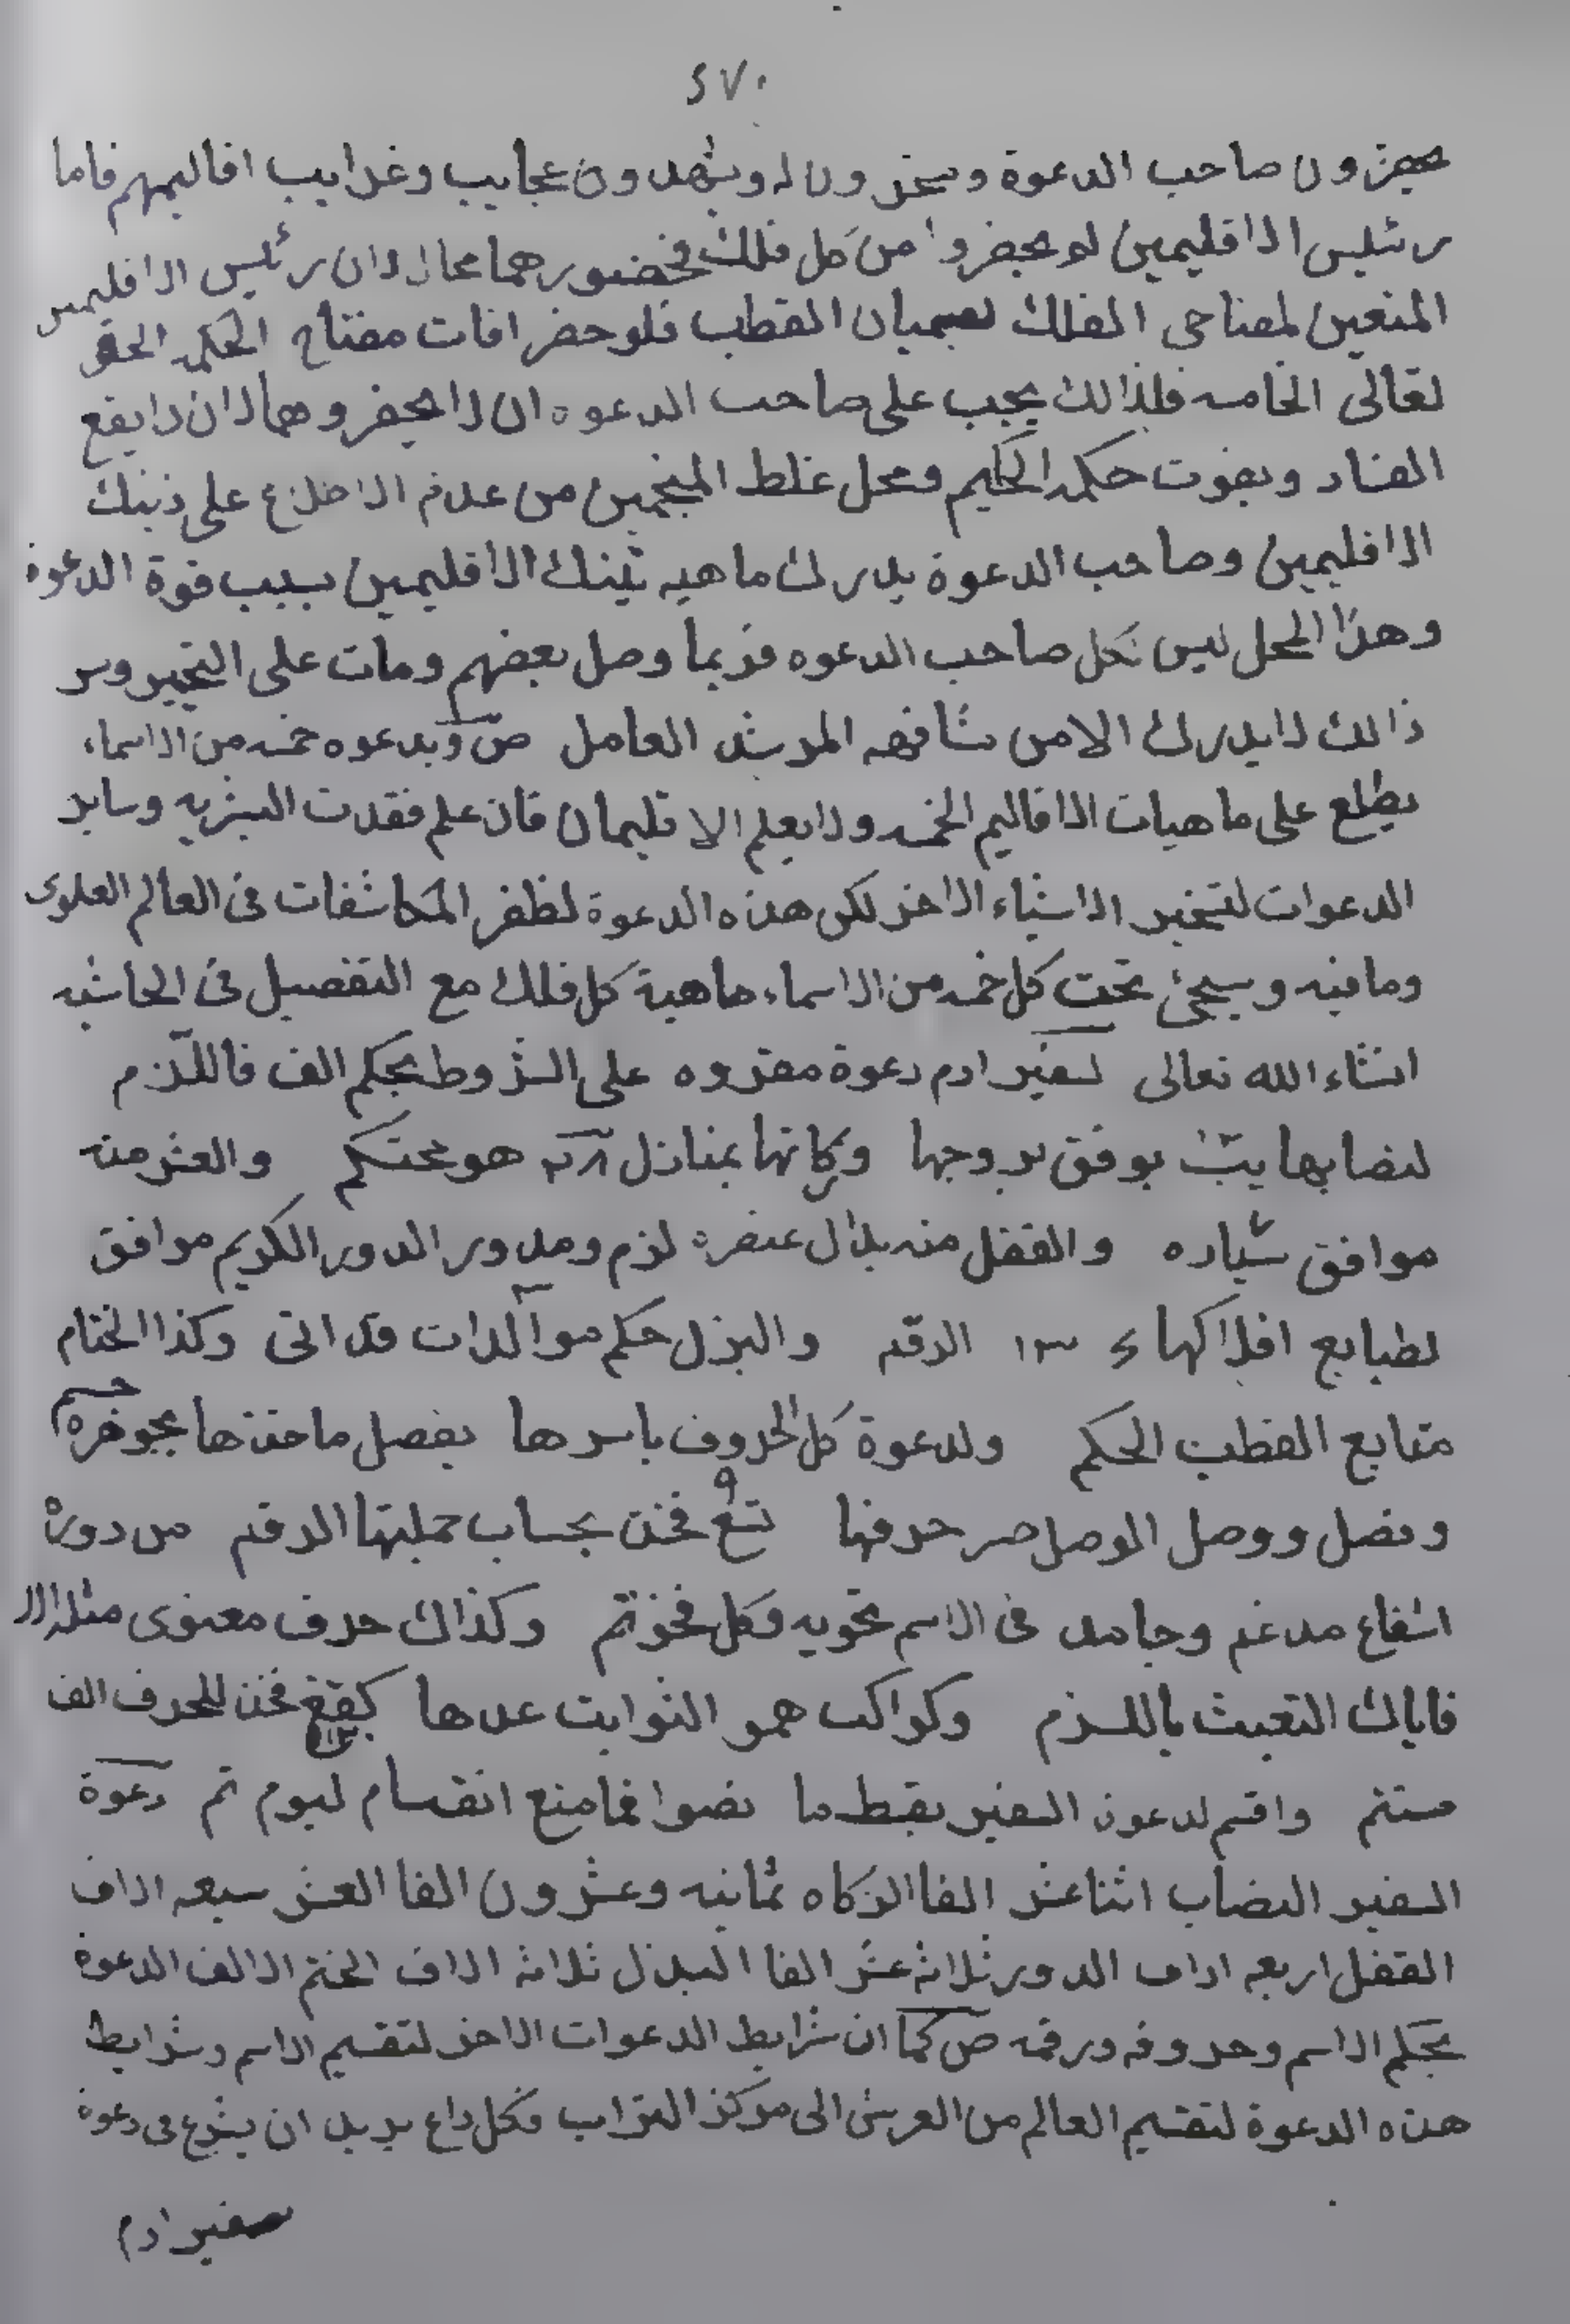 ٤٧٠
يحضرون صاحب الدعوة ويسخرون له ويشهدون عجايب وغرايب اقاليمهم فاما
رئيس الاقليمين لم يحضروا من كل فلك فحضورهما محال لان رئيس الاقليمين
المتعين لمفتاحي الفلك يسميان القطب فلو حضر افات مفتاح الحكمه الحق
تعالى الخامسه فلذالك يجب على صاحب الدعوه ان لا يحضروهما لان لا يقع
الفساد ويفوت حكمة الحكيم ومحل غلط المنجمين من عدم الاطلاع على ذينك
الاقليمين وصاحب الدعوة يدرك ماهيه تينك الاقليمين بسبب قوة الدعوة
وهذا المحل ليس لكل صاحب الدعوه فربما وصل بعضهم ومات على التحير وسر
ذالك لايدرك الا من شافهه المرشد العامل ص وبدعوه خمسه من الاسماء
يطلع على ماهيات الاقاليم الخمسه ولا يعلم الاقليمان فان علم فقدت البشريه وساير
الدعوات لتسخير الاشياء الاخر لكن هذه الدعوة لظفر المكاشفات فى العالم العلوى
ومافيه وسيجئ تحت كل خمسه من الاسماء ماهية كل فلك مع التفصيل فى الحاشيه
انشاء الله تعالى لسفير ادم دعوة مقروه على الشروط بحكم الف فاللازم
لنصابها بوفق بروجها وزكاتها بمنازل هو محتكم والعشر منه
موافق سياره والقفل منه بدال عنصره لزم ومدور الدور الكريم موافق
لطبايع افلاكها الرقم والبزل حكم موالدات قد اتى وكذا الختام
متابع القطب الحكم ولدعوة كل الحروف باسرها بفصل ماخذها
وفصل ووصل الموصل حرفها فخذ بحساب جملتها الرقم من دورة
اشفاع مدغم وجامد فى الاسم تحويه وكل وكذاك حرف معنوى مثله
فاياك التعبث باللزم وكواكب همو الثوابت عدها فخذ للحرف الف
مستتم واقسم لدعوة السفير بقبط ما فما منع انقسام ليوم تم دعوة
السفير النصاب اثنا عشر الفا الزكاه ثمانيه وعشرون الفا العشر سبعه الاف
القفل اربعه الاف الدور ثلاثة عشر الفا البذل ثلاثه الاف الختم الالف الدعوة
بحكم الاسم وحروفه ورقمه ص كما ان شرايط الدعوات الاخر لتقسيم الاسم وشرايط
هذه الدعوة لتقسيم العالم من العرش الى مركز التراب فكل داع يريد ان يشرع فى دعوة
سفير ادم